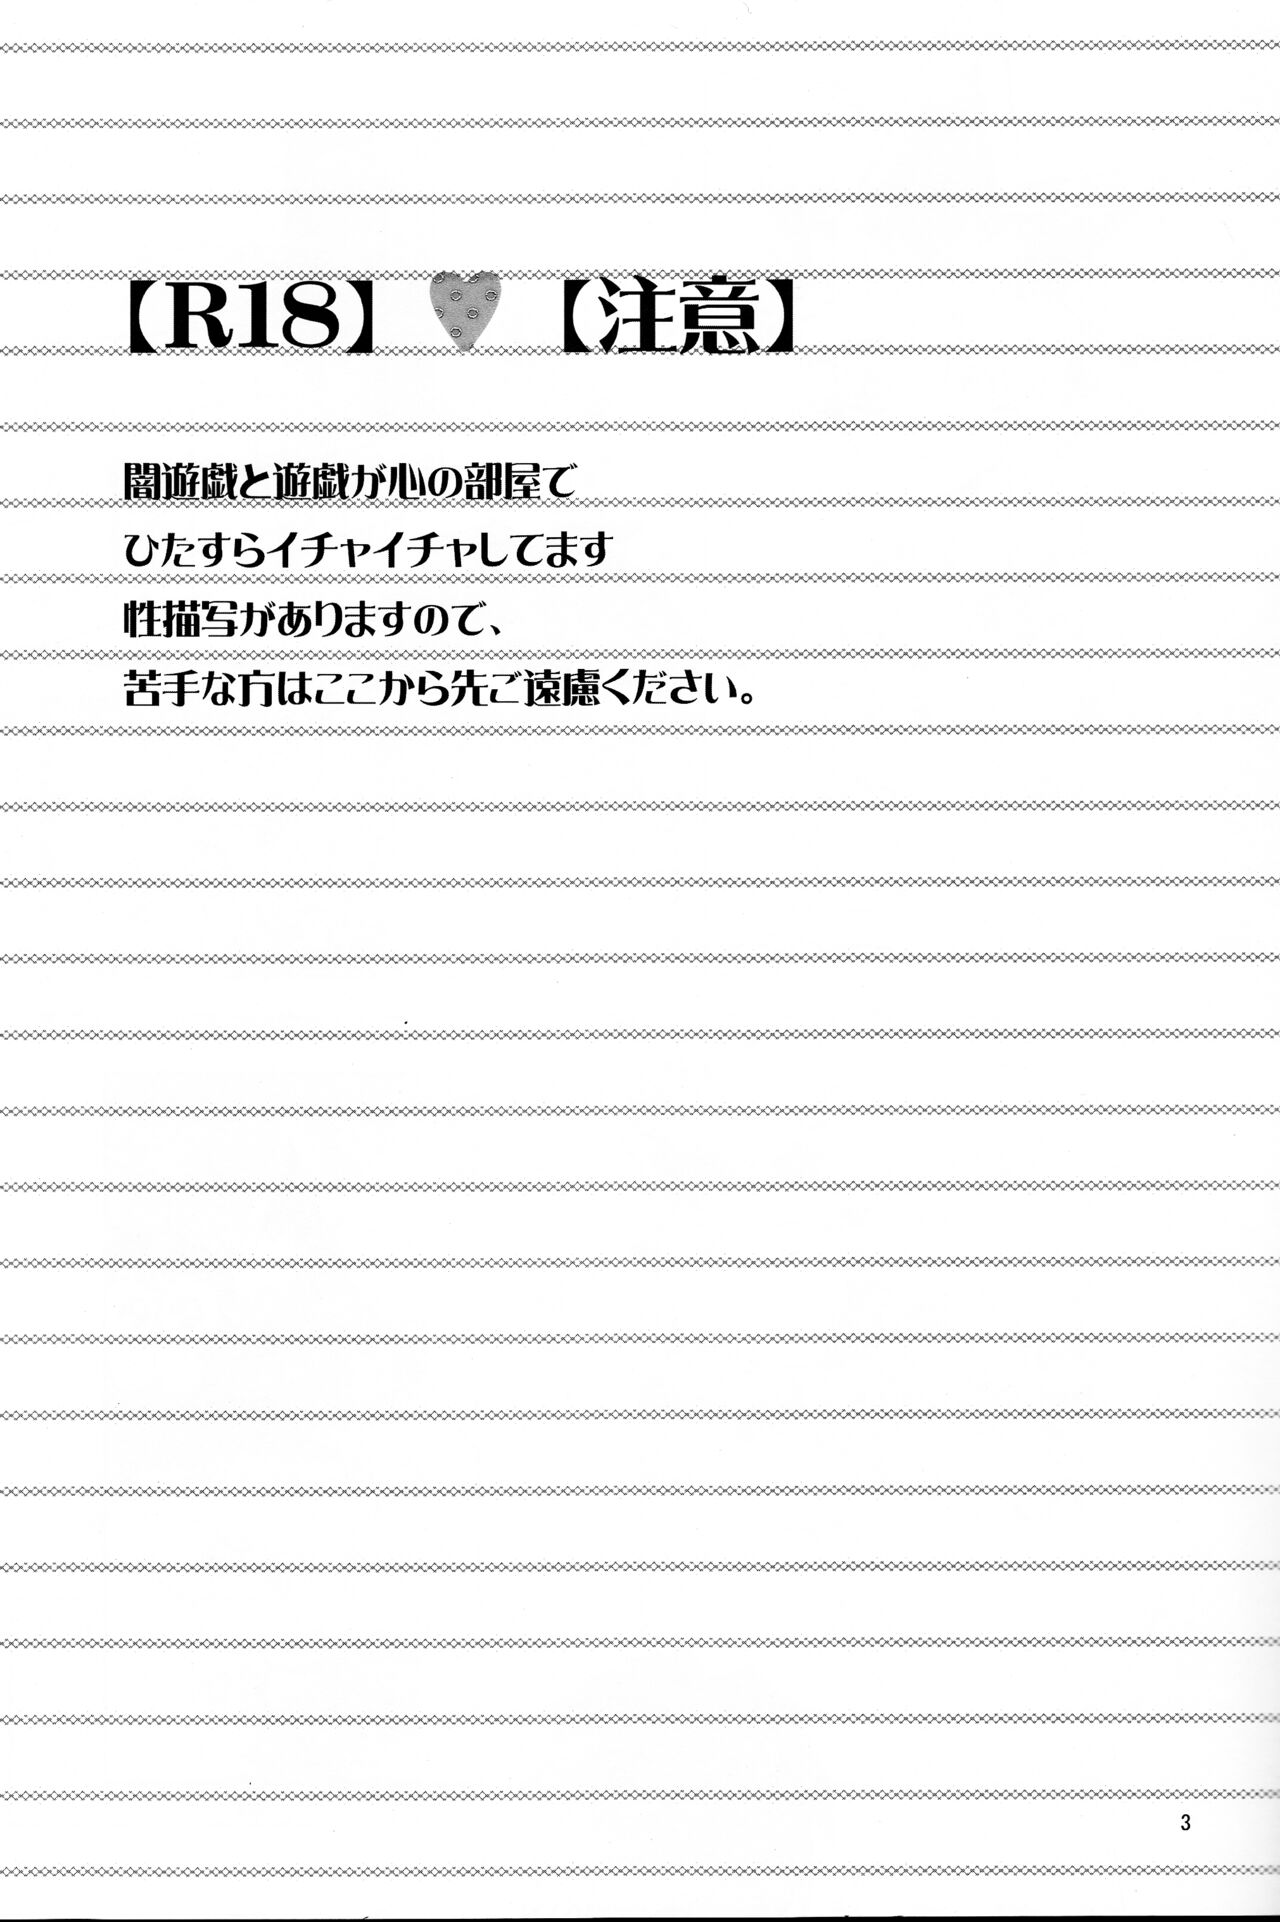 【R18】 【注意】
闇遊戯と遊戯が心の部屋で
ひたすらイチャイチャしてます
性描写がありますので、
苦手な方はここから先ご遠慮ください。
3